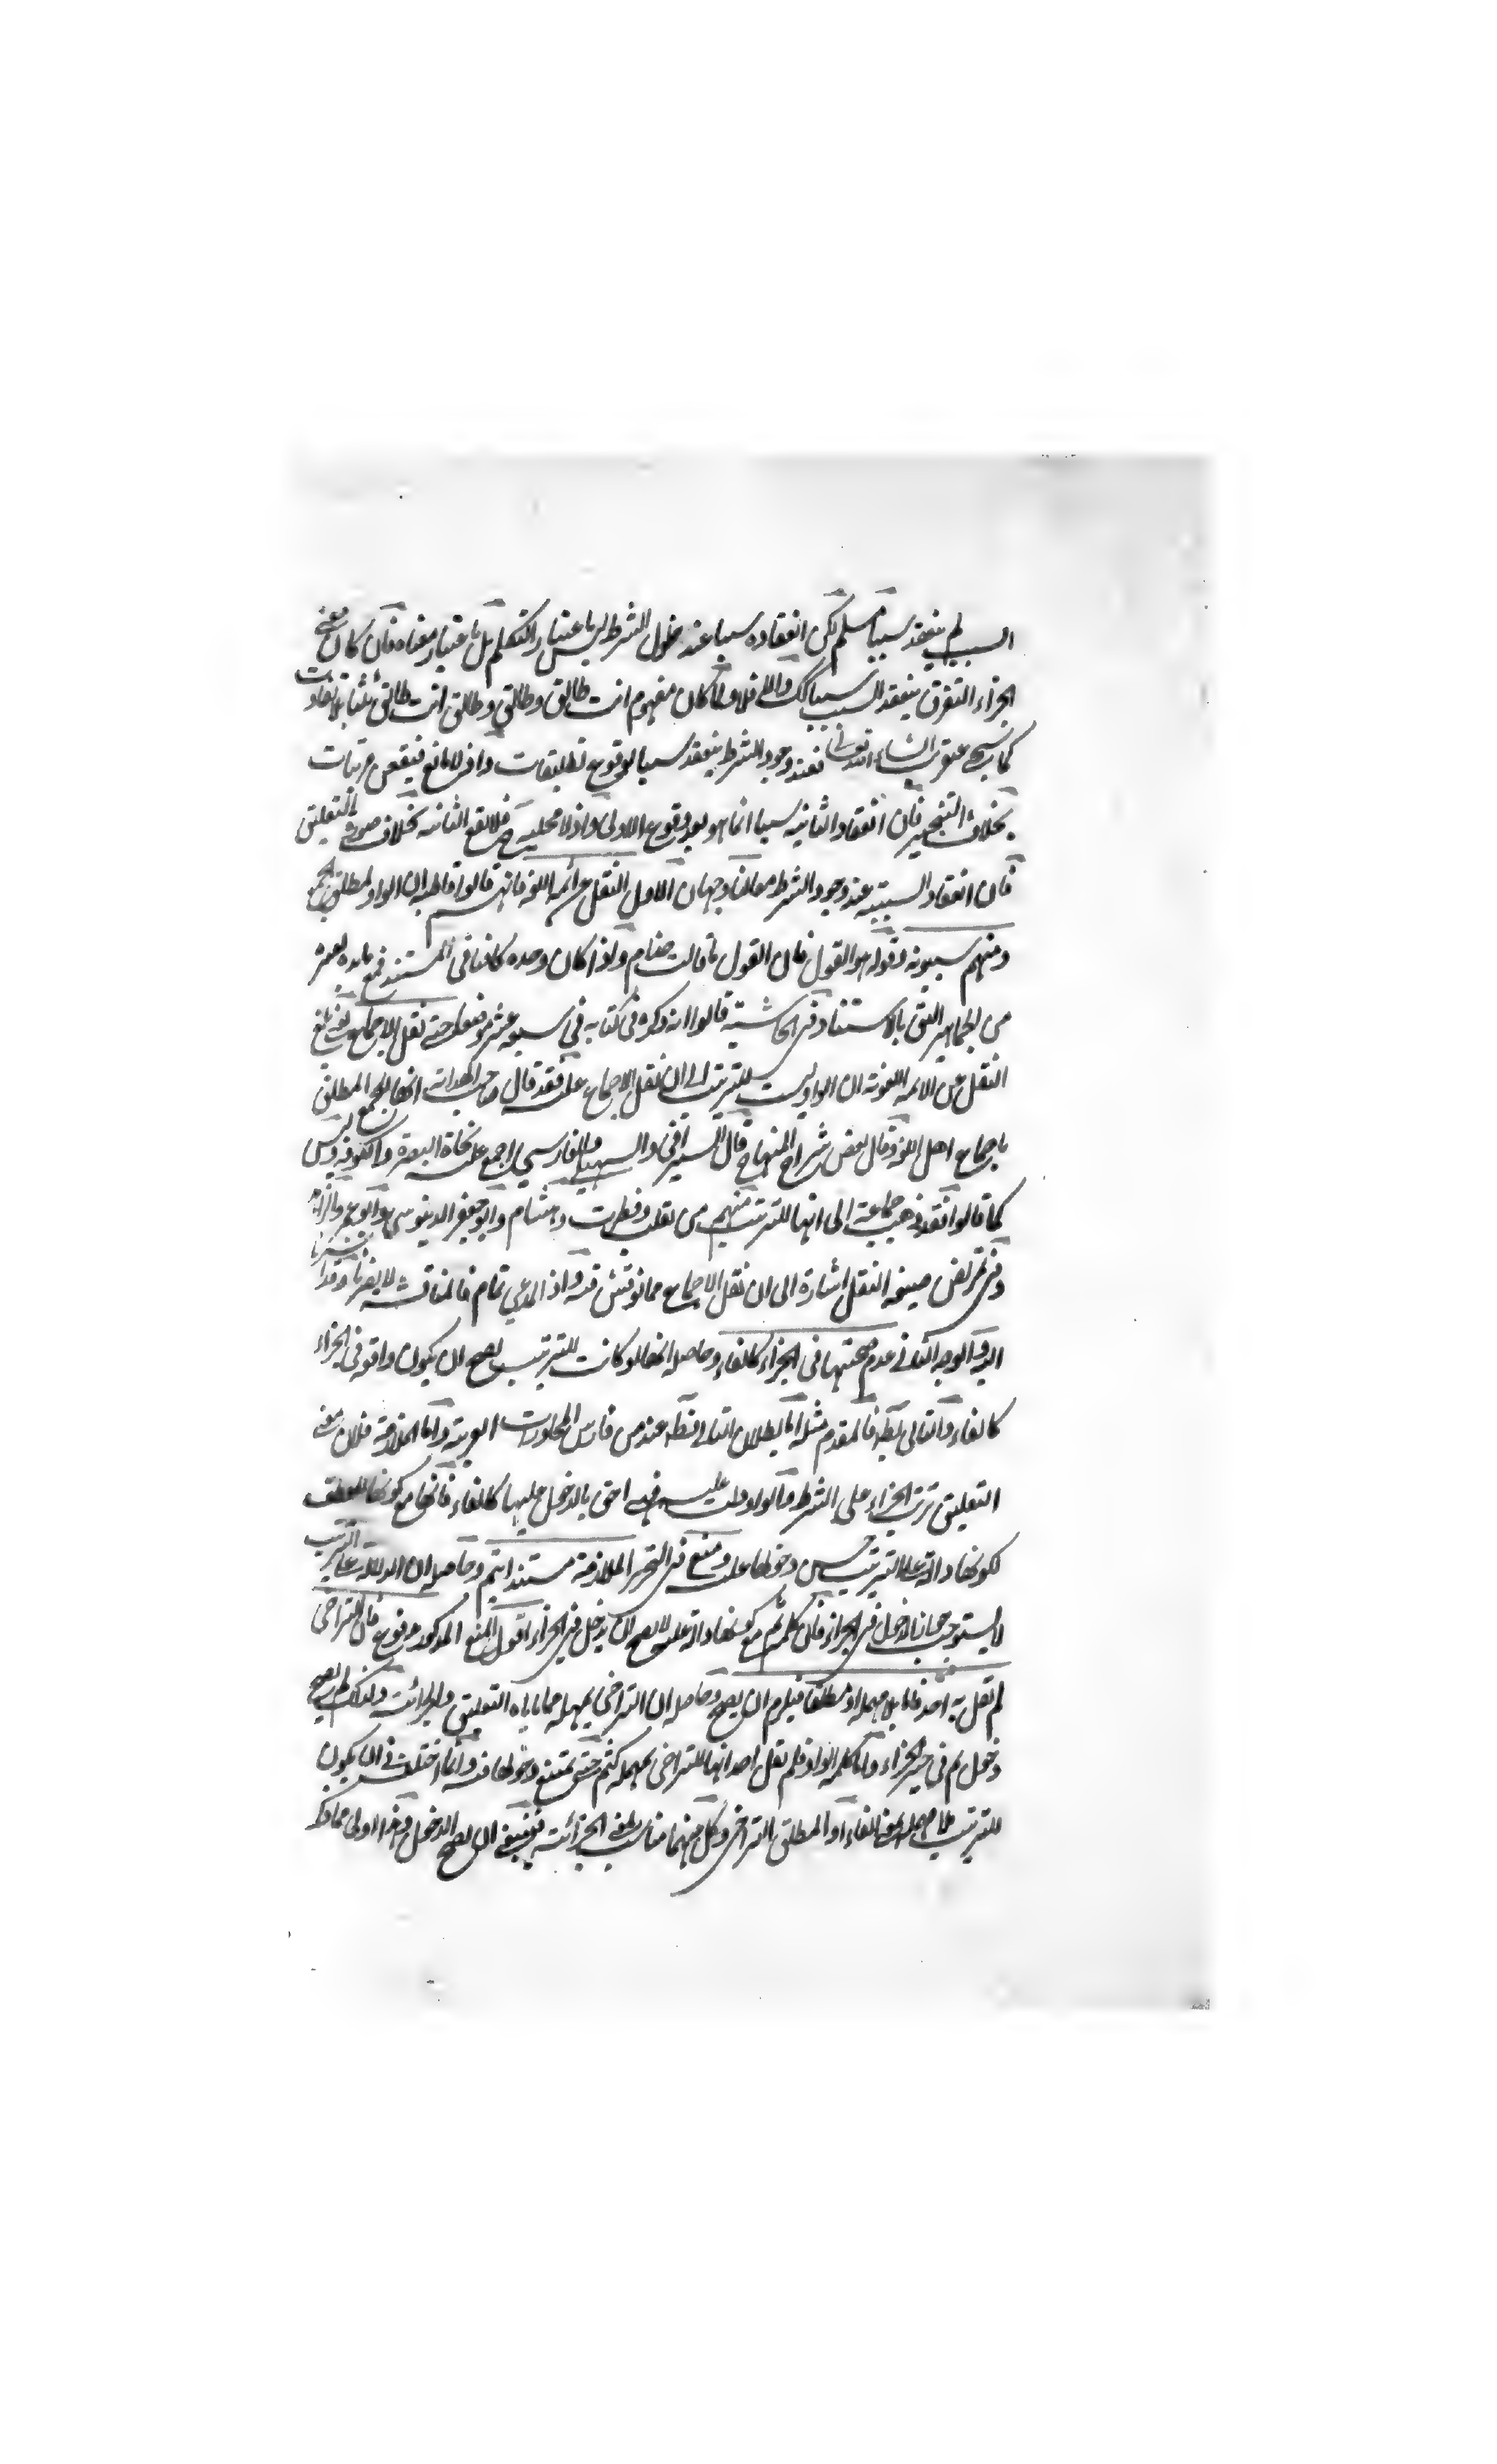 السبب لم ينعقد سببا مسلم لكن انعقاده سببا عند حلول الشرط ليس باعتبار التكلم بل باعتبار معناه فان كان معنى
الجزاء التفرق ينعقد السبب سببا كك والا فلا ولما كان مفهوم انت طالق وطالق وطالق انت طالق ثلثا
كما عن قريب ان شاء الله تعالى فعند وجود الشرط ينعقد سببا لوقوع تطليقات واذ لا مانع فيقعن مرتبات
بخلاف التنجيز فان انعقاد الثانية سببا انما هو بعد وقوع الاولى واذ لا محلية ح فلا تقع الثانية بخلاف صورة التعليق
فان انعقاد السببية عند وجود الشرط معا لنا وجهان الاول النقل عن ائمة اللغة فانهم قالوا قاطبة ان الواو لمطلق الجمع
ومنهم سيبويه وقوله هو القول فان القول ما قالت حذام ولذا كان وحده كافيا في المستند فمع
من الجماهير اليق بالاستناد في الحاشية قالوا انه ذكره في كتابه في سبعة عشر موضعا حتى نقل الاجماع يعني بلغ
النقل عن الائمة اللغوية ان الواو ليست للترتيب الى ان نقل الاجماع عليه فقد قال صاحب الهداية انها للجمع المطلق
باجماع اهل اللغة وقال بعض شراح المنهاج قال السيرافي والسهيلي والفارسي اجمع عليه نحاة البصرة والكوفة وليس
كما قالوا فقد ذهب جماعة الى انها للترتيب منهم من ثعلب وقطرب وهشام وابو جعفر الدينوري وابو عمر والزاهد
وفي تمريض صيغة النقل اشارة الى ان نقل الاجماع مما نوقش فيه واذ المدعى تمام فالمناقشة لا يضرنا وقد اشرنا
اليه والوجه الثاني عدم صحتها في الجزاء كالفاء وحاصله انها لو كانت للترتيب لصح ان يكون واقعة في الجزاء
كالفاء والتالي بط فالمقدم مثله اما بطلان التالي فظ عند من مارس المحاورات العربية واما الملازمة فلان معنى
التعليق ترتب الجزاء على الشرط فالواو دلت عليه فهي احق بالدخول عليها كالفاء فانها مع كونها للعطف
لكونها دالة على الترتيب حسن دخولها عليه ومنع في التحرير الملازمة مستندا بثم وحاصله ان الدلالة على الترتيب
لا يستوجب جواز الدخول في الجزاء فان كلمة ثم مع كونها دالة عليه لا يصح ان يدخل في الجزاء اقول المنع المذكور مدفوع فان التراخي
لم تقل به احد فاما بلا مهملة او مطلقا فيلزم ان يصح وحاصله ان التراخي بمهلة مما ياباه التعليق والجزائية ولذلك لم يصح
دخول ثم في حيز الجزاء واما كلمة الواو فلم يقل احد انها للتراخي بمهلة كثم حتى يمتنع دخولها فيه وانما اختلف في ان يكون
للترتيب بلا مهملة بمعنى الفاء او المطلق التراخي وكل منهما مناسب لمعنى الجزائية فينبغي ان يصح الدخول وهذا اولى مما ذكر